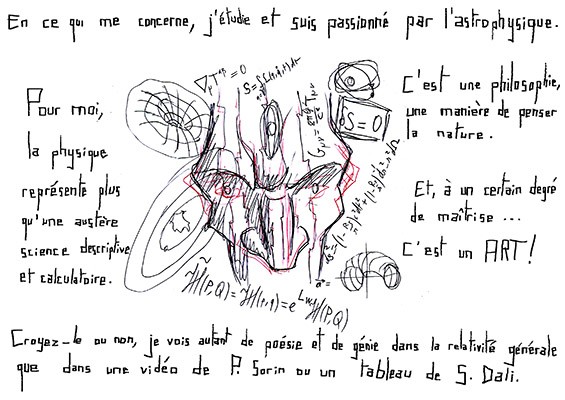 En ce qui me concerne, j'étudie et suis passionné par l'astrophysique.
Pour moi,
la physique
représente plus
qu'une austère
science descriptive
et calculatoire.
S = 0
C'est une philosophie,
une manière de penser
la nature.
Et, à un certain degré
de maîtrise ...
C'est un ART!
Croyez-le ou non, je vois autant de poésie et de génie dans la relativité générale
que dans une vidéo de P. Sorin ou un tableau de S. Dali.